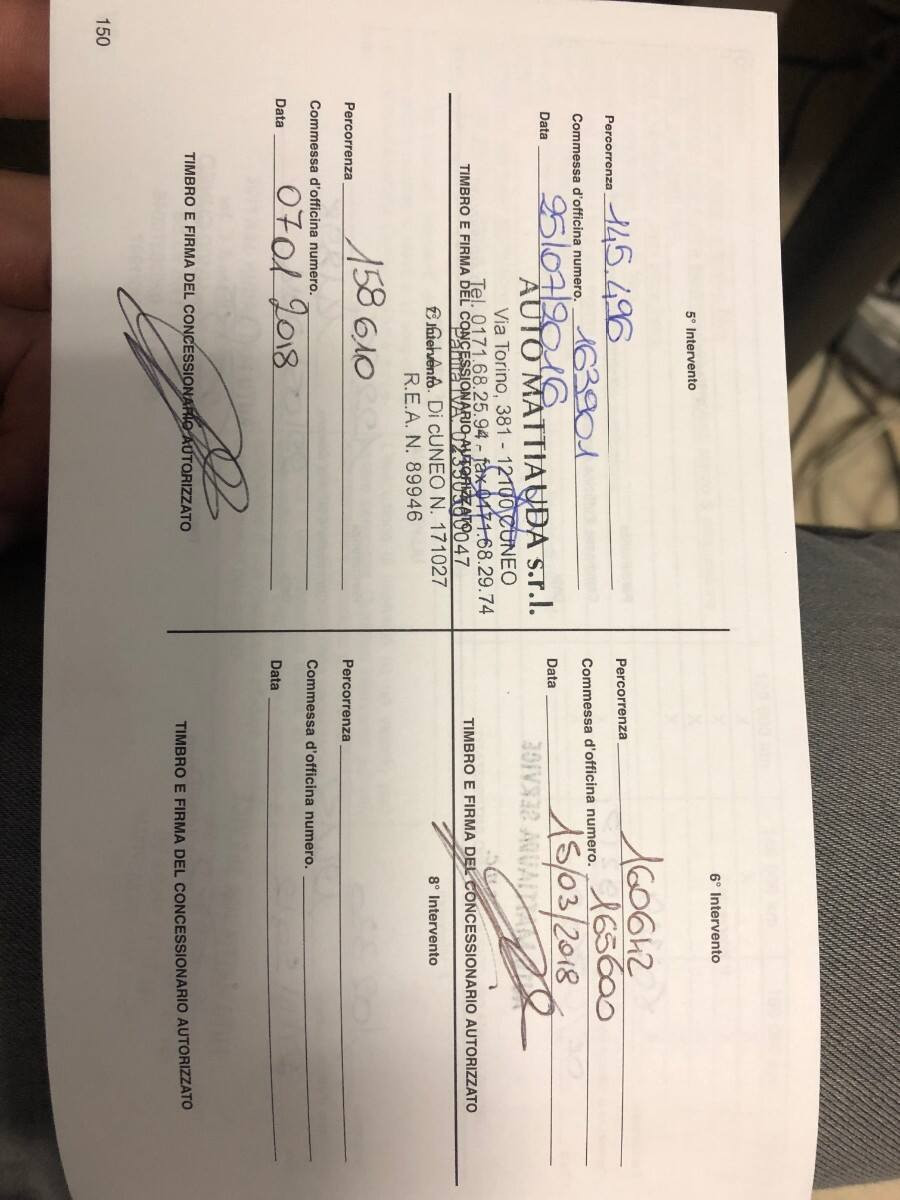 5° Intervento
Percorrenza 145.496
Commessa d'officina numero. 163901
Data 25/07/2016
AUTO MATTIAUDA s.r.l.
Via Torino, 381 - 12100 CUNEO
Tel. 0171.68.25.94 - fax 0171.68.29.74
TIMBRO E FIRMA DEL CONCESSIONARIO AUTORIZZATO
Partita IVA
C.C.I.A.A. Di cUNEO N. 171027
R.E.A. N. 89946
6° Intervento
Percorrenza 160642
Commessa d'officina numero. 165600
Data 15/03/2018
TIMBRO E FIRMA DEL CONCESSIONARIO AUTORIZZATO
Intervento
Percorrenza 158610
Commessa d'officina numero.
Data 07 01 2018
TIMBRO E FIRMA DEL CONCESSIONARIO AUTORIZZATO
8° Intervento
Percorrenza
Commessa d'officina numero.
Data
TIMBRO E FIRMA DEL CONCESSIONARIO AUTORIZZATO
150